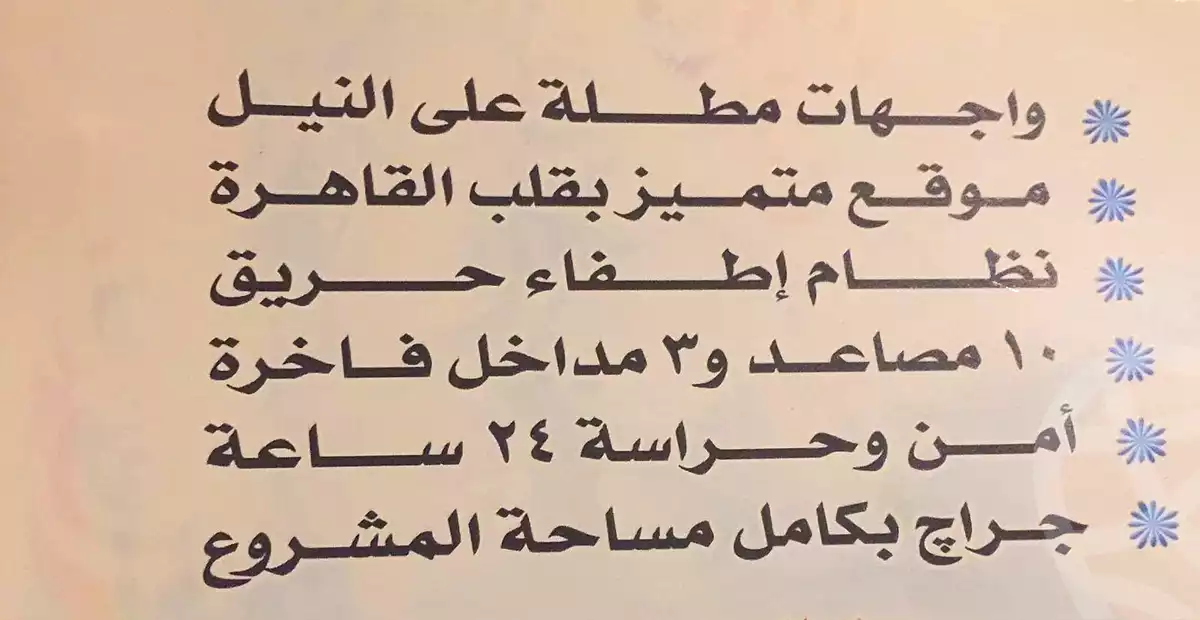 واجهات مطلة على النيل
موقع متميز بقلب القاهرة
نظام إطفاء حريق
١٠ مصاعد و٣ مداخل فاخرة
أمن وحراسة ٢٤ ساعة
جراچ بكامل مساحة المشروع